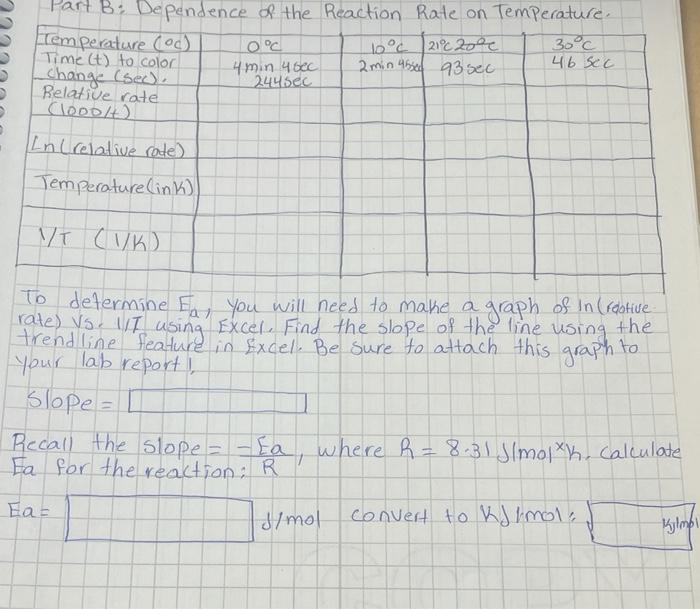 Part B: Dependence of the Reaction Rate on Temperature.
Temperature (oc) 0°C 10°C 21°C 20°C 30°C
Time (t) to color change (sec). 4 min 4 sec 244 sec 2 min 46 sec 93 sec 46 sec
Relative rate (1000/t)
Ln (relative rate)
Temperature (in K)
1/T (1/K)
To determine Ea, you will need to make a graph of ln (relative
rate) vs. 1/T using Excel. Find the slope of the line using the
trendline feature in Excel. Be sure to attach this graph to
your lab report!
Slope =
Recall the slope = -Ea/R, where R = 8.31 J/mol×K. Calculate
Ea for the reaction:
Ea = J/mol convert to KJ/mol: KJ/mol